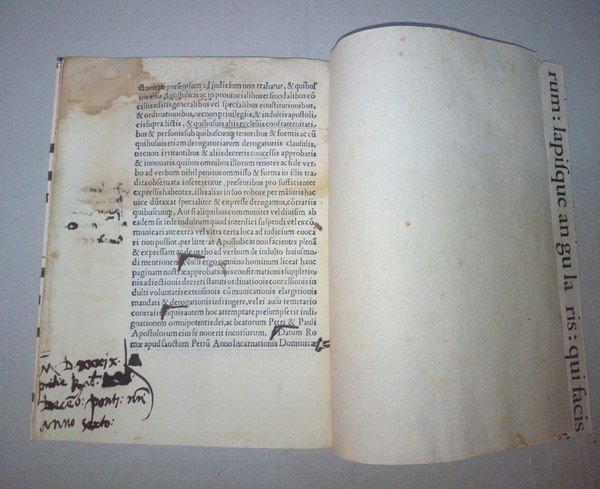 &oritate presentium ad iudicium non trahatur, & quibus
uis aliis Apostolicis ac in prouincialibus et sinodalibus cō
ciliis editis generalibus vel specialibus constitutionibus,
& ordinationibus, necnon priuilegiis, & indultis apostoli
cis supra dictis, & quibusuis aliis ecclesiis confraternitati
bus & personis sub quibuscunq; tenoribus & formis ac cū
quibusuis etiam derogatoriarum derogatoriis clausulis,
necnon irritantibus & aliis decretis concessis approbatis
& innouatis. quibus omnibus illorum tenores ac si de ver
bo ad verbum nihil penitus omisso & forma in illis tradi
ta obseruata insererentur, presentibus pro sufficienter
expressis habentes, illis alias in suo robore per māsuris hac
vice dūtaxat specialiter & expresse derogamus, cōtrariis
quibuscunq;. Aut si aliquibus communiter vel diuisim ab
eadem sit sede indultum quod interdici suspendi vel ex cō
municari aut extra vel vltra certa loca ad iudicium euoca
ri non possint, per litteras Apostolicas non facientes plenā
& expressam ac de verbo ad verbum de indulto huiusmo
di mentionem. Nulli ergo omnino hominum liceat hanc
paginam nostræ approbationis confirmationis suppletio
nis adiectionis decreti statuti ordinationis concessionis in
dulti voluntatis extensionis cōmunicationis elargitionis
mandati & derogationis infringere, vel ei ausu temerario
contraire si quis autem hoc attemptare presumpserit indi
gnationem omnipotentis dei, ac beatorum Petri & Pauli
Apostolorum eius se nouerit incursurum. Datum Ro
mæ apud sanctum Petrū Anno Incarnationis Dominicæ
M D xxxix.
pridie kal.
Decēb: ponti: nri
anno sexto:
rum: lapisque an gu la ris: qui facis